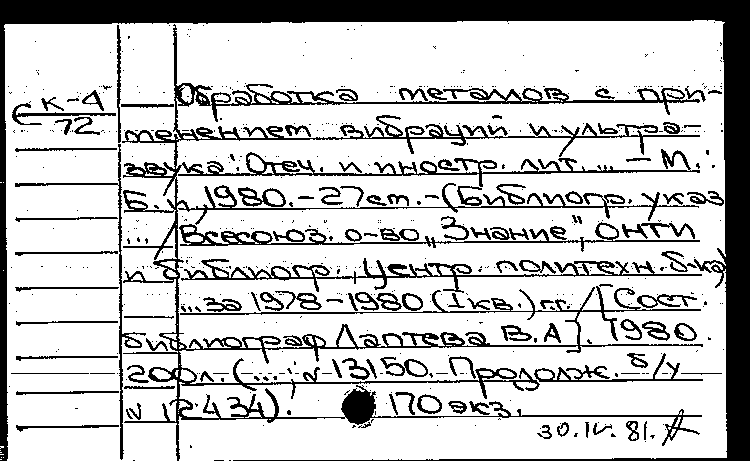 Є К-4
72
Обработка металлов с при-
менением вибраций и ультра-
звука: Отеч. и иностр. лит. ... - М.:
Б. и., 1980. - 27 см. - (Библиогр. указ
... Всесоюз. о-во „Знание”, ОНТИ
и библиогр., Центр. политехн. б-ка)
... за 1978-1980 (I кв.) г.г. / [Сост.
библиограф Лаптева В.А]. 1980.
200л. (...; № 13150. Продолж. б/у
№ 12434).
170 экз.
30.IV.81.